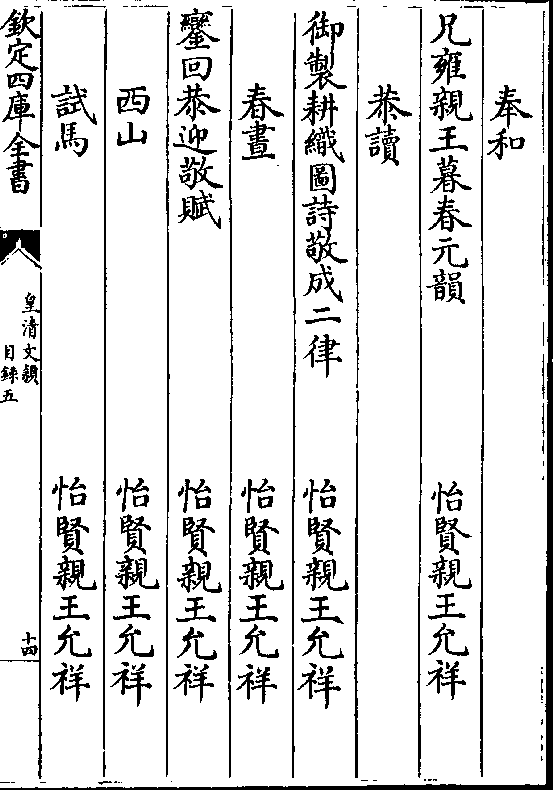 奉和
兄雍親王暮春元韻　怡賢親王允祥
恭讀
御製耕織圖詩敬成二律　怡賢親王允祥
春晝　怡賢親王允祥
鑾回恭迎敬賦　怡賢親王允祥
西山　怡賢親王允祥
試馬　怡賢親王允祥
欽定四庫全書
皇清文穎
目錄五
十四